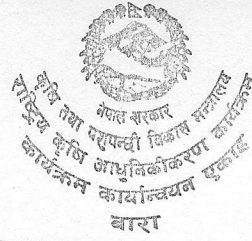 नेपाल सरकार
कृषि तथा पशुपन्छी विकास मन्त्रालय
राष्ट्रिय कृषि आधुनिकीकरण कार्यक्रम
कार्यक्रम कार्यान्वयन एकाई
बारा